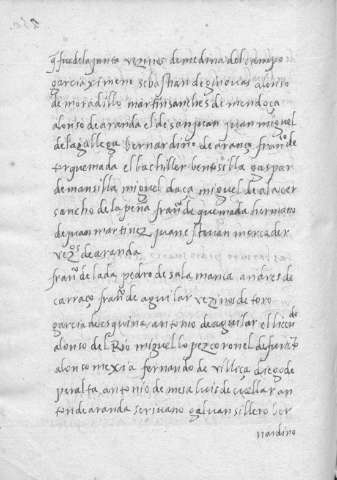 q̃ fue de la junta vezinos de medina del campo
garcia ximenez sebastian de ginovas alonso
de moradillo martin sanches de mendoça
alonso de aranda el de san juan juan miguel
de la gallega bernardino de arança franco de
torquemada el bachiller gaspar
de mansilla miguel daça miguel de alacer
sancho de la peña franco de quemada herniano
de juan martinez juan estevan mercader
vezos de aranda
franco de lada pedro de salamanca andres de
carraço franco de aguilar vezinos de toro
garcia de esquina antonio de aguilar el licendo
alonso del Rio miguel lopez coronel
alonso mexia fernando de villeça diego de
peralta antonio de mesa luis de cuellar an
ton de aranda scrivano galvan sillero ber
nardino